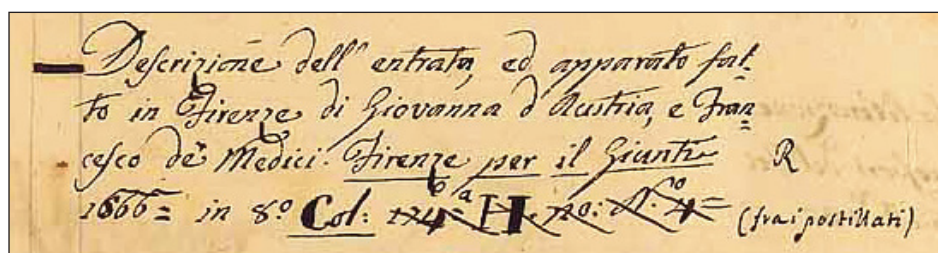 Descrizione dell' entrata, ed apparato fat-
to in Firenze di Giovanna d'Austria, e Fran=
cesco de' Medici. Firenze per il Giunti R
1566= in 8.º Col: 124= H. no: N.º 4= (fra i postillati)